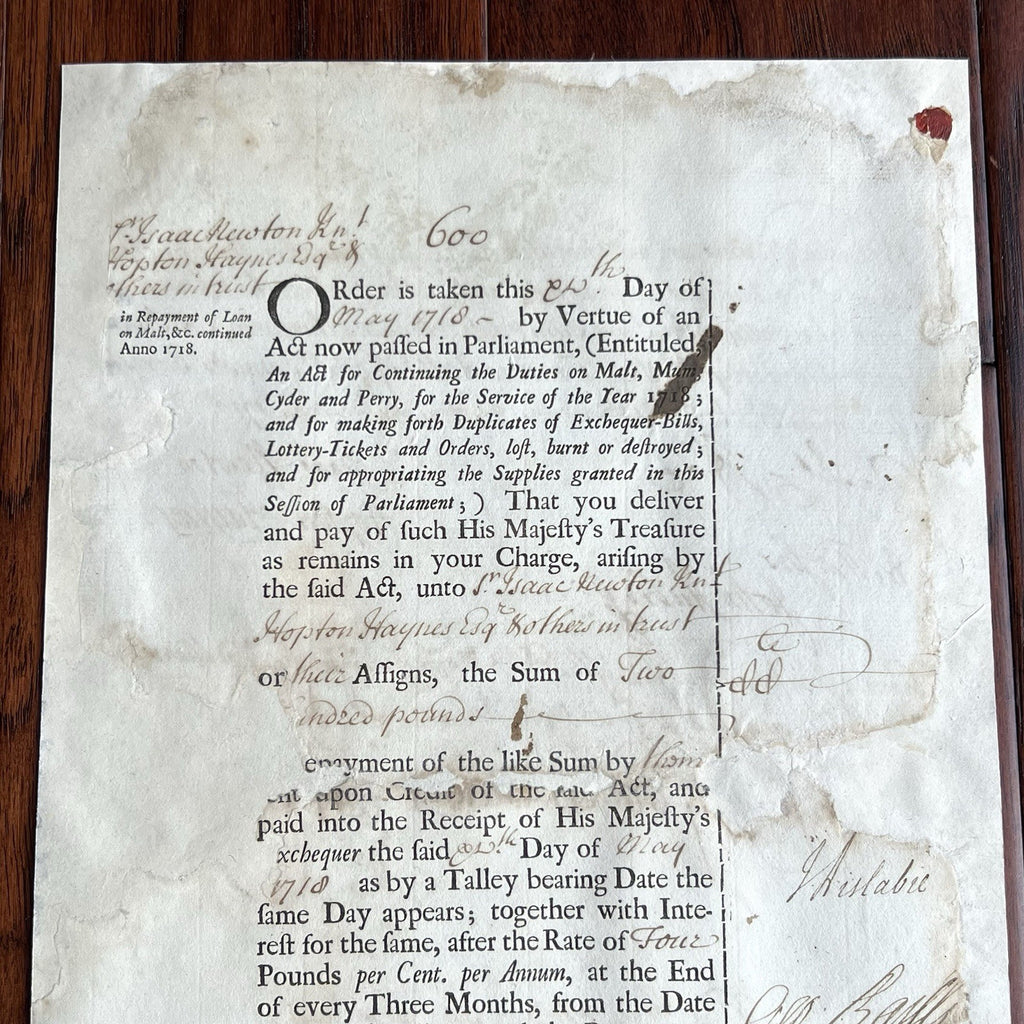 Sr. Isaac Newton Knt
600
Hopton Haynes Esqr &
others in trust
in Repayment of Loan
on Malt, &c. continued
Anno 1718.
ORder is taken this th Day of
May 1718 by Vertue of an
Act now paſſed in Parliament, (Entituled,
An Act for Continuing the Duties on Malt, Mum,
Cyder and Perry, for the Service of the Year 1718;
and for making forth Duplicates of Exchequer-Bills,
Lottery-Tickets and Orders, loſt, burnt or deſtroyed;
and for appropriating the Supplies granted in this
Seſſion of Parliament;) That you deliver
and pay of ſuch His Majeſty's Treaſure
as remains in your Charge, ariſing by
the ſaid Act, unto Sr. Isaac Newton Knt
Hopton Haynes Esqr & others in trust
or their Aſſigns, the Sum of Two
undred pounds
epayment of the like Sum by them
ent upon Credit of the ſaid Act, and
paid into the Receipt of His Majeſty's
xchequer the ſaid th Day of May
1718 as by a Talley bearing Date the
ſame Day appears; together with Inte-
reſt for the ſame, after the Rate of Four
Pounds per Cent. per Annum, at the End
of every Three Months, from the Date
J Aislabie